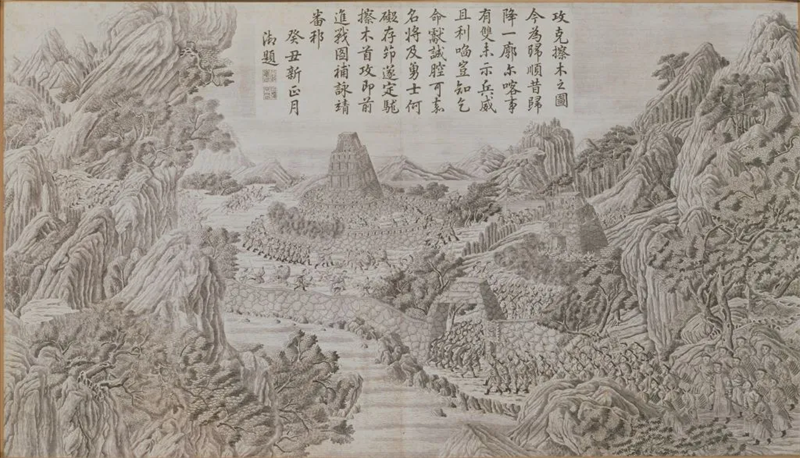 攻克擦木之圖
今為歸順昔歸
降一廓尔喀事
有雙未示兵威
且利啗豈知乞
命獻誠腔可嘉
名将及勇士何
存遂定駹
擦木首攻即前
進戰圖補詠靖
番邦
癸丑新正月
御題